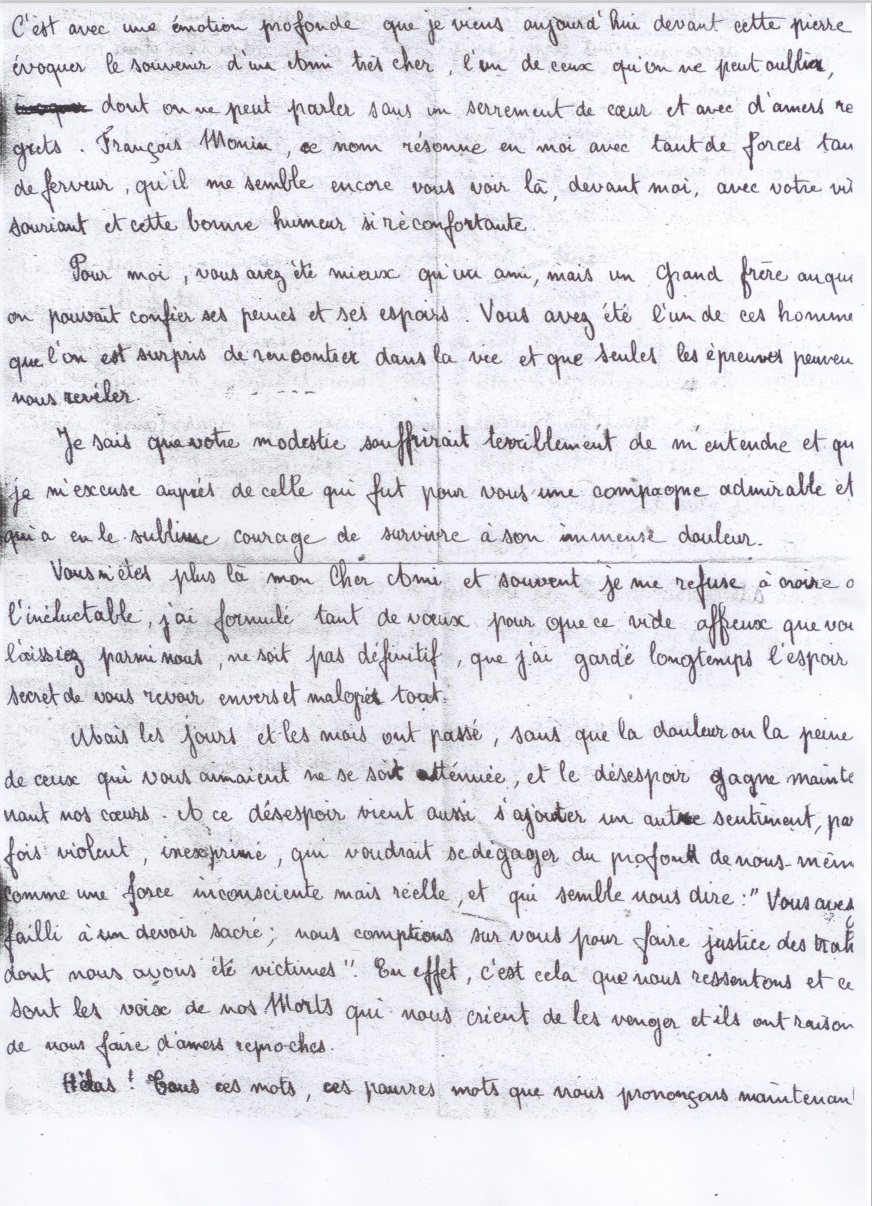 C'est avec une émotion profonde que je viens aujourd'hui devant cette pierre
évoquer le souvenir d'un Ami très cher, l'un de ceux qu'on ne peut oublier,
dont on ne peut parler sans un serrement de cœur et avec d'amers re
grets. François Monin, ce nom résonne en moi avec tant de forces tan
de ferveur, qu'il me semble encore vous voir là, devant moi, avec votre vis
souriant et cette bonne humeur si réconfortante.
Pour moi, vous avez été mieux qu'un ami, mais un Grand frère auque
on pouvait confier ses peines et ses espoirs. Vous avez été l'un de ces homme
que l'on est surpris de rencontrer dans la vie et que seules les épreuves peuven
nous révéler.
Je sais que votre modestie souffrirait terriblement de m'entendre et qu
je m'excuse auprès de celle qui fut pour vous une compagne admirable et
qui a eu le sublime courage de survivre à son immense douleur.
Vous n'êtes plus là mon Cher Ami et souvent je me refuse à croire à
l'inéluctable, j'ai formulé tant de vœux pour que ce vide affreux que vou
laissiez parmi nous, ne soit pas définitif, que j'ai gardé longtemps l'espoir
secret de vous revoir envers et malgré tout.
Mais les jours et les mois ont passé, sans que la douleur ou la peine
de ceux qui vous aimaient ne se soit atténuée, et le désespoir gagne mainte
nant nos cœurs. A ce désespoir vient aussi s'ajouter un autre sentiment, par
fois violent, inexprimé, qui voudrait se dégager du profond de nous-mêm
comme une force inconsciente mais réelle, et qui semble nous dire : "Vous avez
failli à un devoir sacré ; nous comptions sur vous pour faire justice des trah
dont nous avons été victimes". En effet, c'est cela que nous ressentons et ce
sont les voix de nos Morts qui nous crient de les venger et ils ont raison
de nous faire d'amers reproches.
Hélas ! Tous ces mots, ces pauvres mots que nous prononçons maintenan